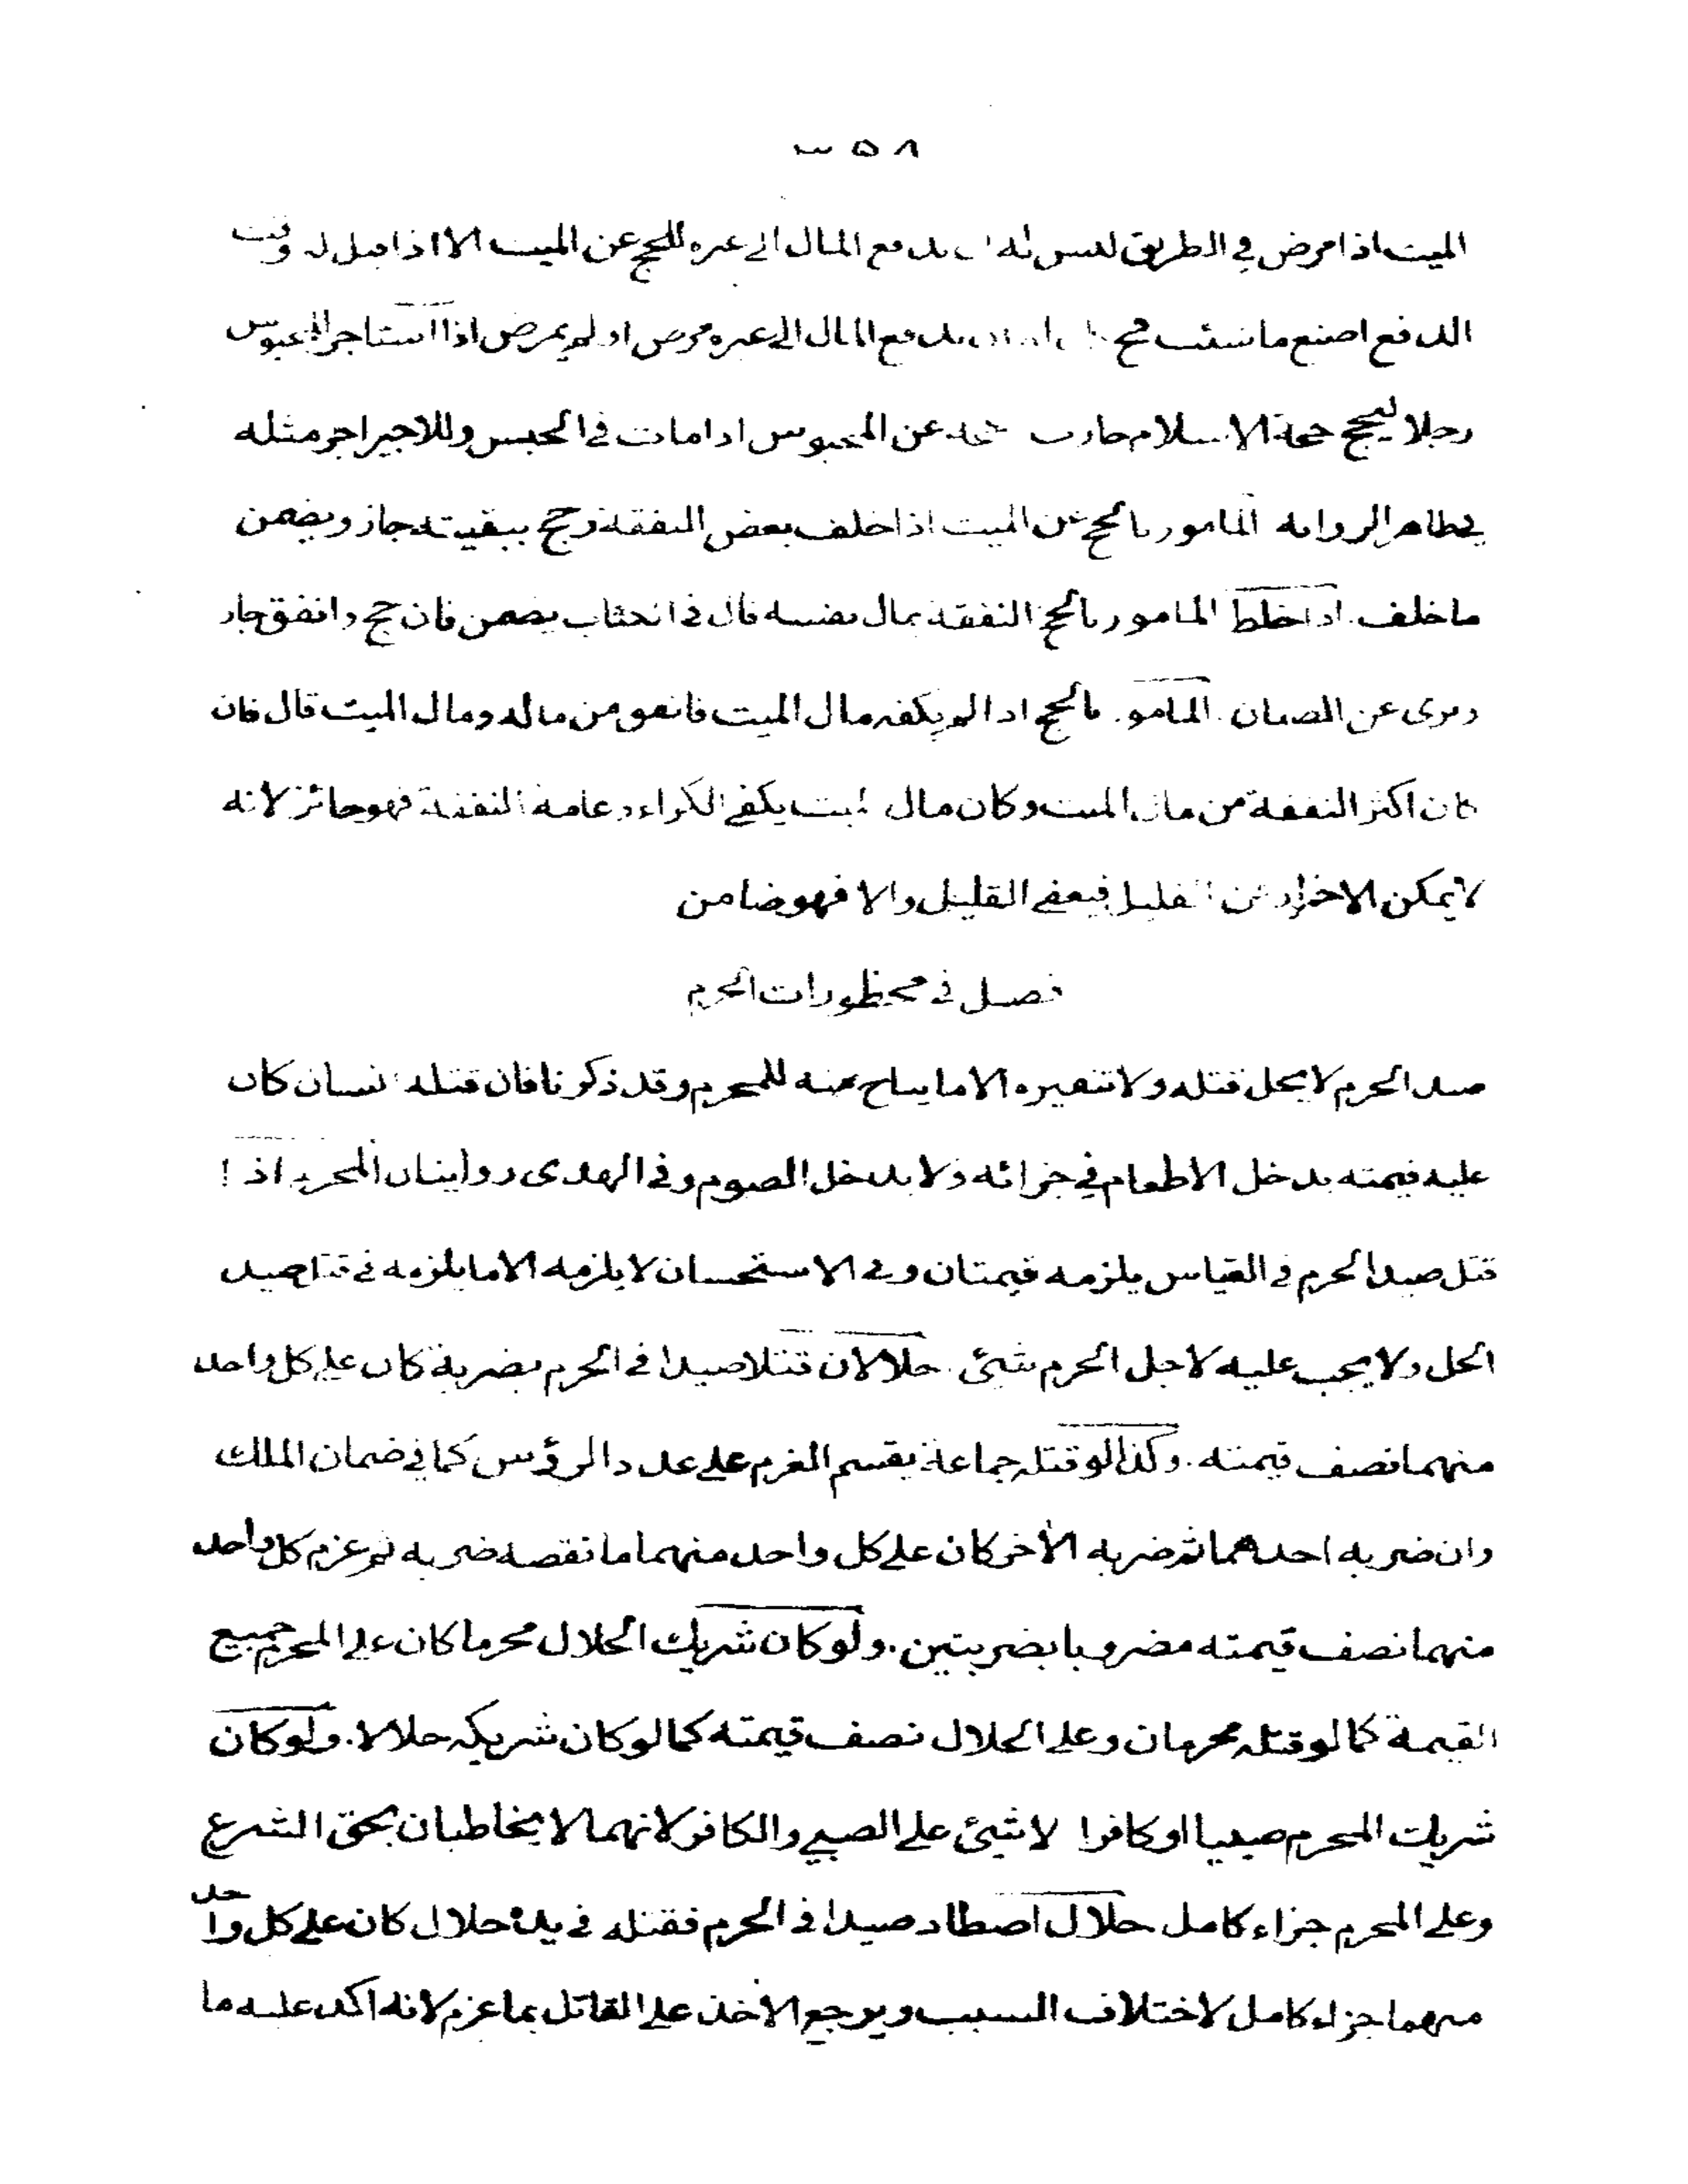 ٣٥٨
الميت اذا مرض في الطريق ليس له ان يدفع المال الى غيره للحج عن الميت الا اذا قيل له وقت
الدفع اصنع ما شئت فح له ان يدفع المال الى غيره مرض او لم يمرض اذا استاجر المحبوس
رجلا ليحج حجة الاسلام جازت حجته عن المحبوس اذا مات في الحبس وللاجير اجر مثله
في ظاهر الرواية المامور بالحج عن الميت اذا خلف بعض النفقة وحج ببقيته جاز ويضمن
ما خلف اذا خلط المامور بالحج النفقة بمال نفسه قال في الكتاب يضمن فان حج وانفق جاز
وبرى عن الضمان المامور بالحج اذا لم يكفه مال الميت فانفق من ماله ومال الميت قال فان
كان اكثر النفقة من مال الميت وكان مال الميت يكفي الكراء وعامة النفقة فهو جائز لانه
لا يمكن الاحتراز عن القليل فيعفى القليل والا فهو ضامن
فصل في محظورات الحرم
صيد الحرم لا يحل قتله ولا تنفيره الا ما يباح منه للمحرم وقد ذكرنا فان قتله انسان كان
عليه قيمته يدخل الاطعام في جزائه ولا يدخل الصوم وفي الهدى روايتان المحرم اذا
قتل صيد الحرم في القياس يلزمه قيمتان وفى الاستحسان لا يلزمه الا ما يلزمه في قتل صيد
الحل ولا يجب عليه لاجل الحرم شئ. حلالان قتلا صيدا في الحرم بضربة كان على كل واحد
منهما نصف قيمته. وكذا لو قتله جماعة يقسم الغرم على عدد الرؤس كما في ضمان الملك
وان ضربه احدهما ثم ضربه الأخر كان على كل واحد منهما ما نقصه ضربه ثم غرم كل واحد
منهما نصف قيمته مضروبا بضربتين. ولو كان شريك الحلال محرما كان على المحرم جميع
القيمة كما لو قتله محرمان وعلى الحلال نصف قيمته كما لو كان شريكه حلالا. ولو كان
شريك المحرم صبيا او كافرا لا شئ على الصبي والكافر لانهما لا يخاطبان بحق الشرع
وعلى المحرم جزاء كامل حلال اصطاد صيدا في الحرم فقتله في يده حلال كان على كل واحد
منهما جزاء كامل لاختلاف السبب ويرجع الأخذ على القاتل بما غرم لانه اكد عليه ما